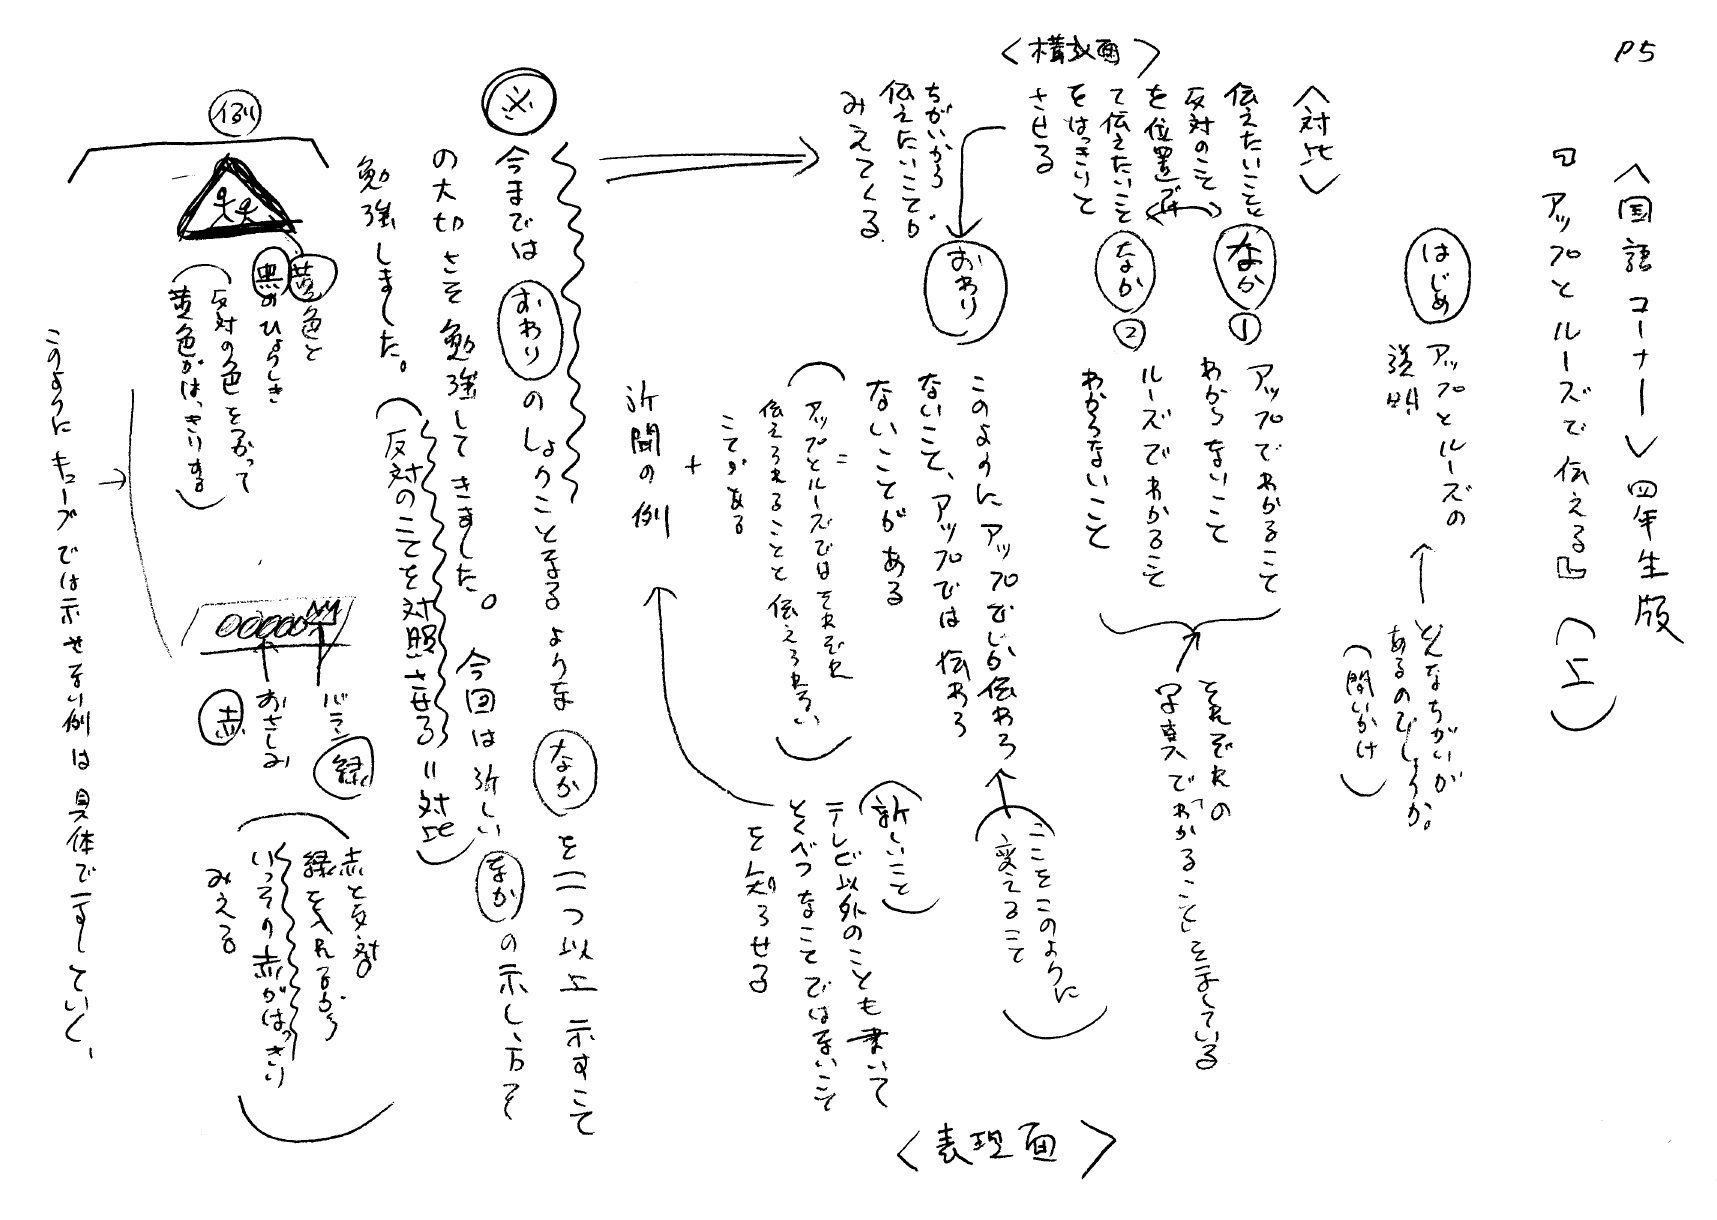 P5
〈国語コーナー〉四年生版
『アップとルーズで伝える』(上)
はじめ
アップとルーズの
説明
どんなちがいが
あるのでしょうか。
(問いかけ)
〈対比〉
伝えたいことと
反対のこと
を位置づけ
て伝えたいこと
をはっきりと
させる
〈構成面〉
なか
①
アップでわかること
わからないこと
なか
②
ルーズでわかること
わからないこと
それぞれの
写真で「わかること」を示している
ちがいから
伝えたいことが
みえてくる
おわり
このようにアップでしか伝わら
ないこと、アップでは伝わら
ないことがある
=
(アップとルーズではそれぞれ
伝えられることと伝えられない
ことがある)
+
新聞の例
(ここをこのように
変えること)
(新しいこと)
テレビ以外のことも書いて
とくべつなことではないこと
を知らせる
〈表現面〉
※
今まではおわりのしょうことなるようななかを二つ以上示すこと
の大切さを勉強してきました。今回は新しいなかの示し方を
勉強しました。
(反対のことを対照させる=対比)
例
黄色と
黒のひょうしき
(反対の色をつかって
黄色がはっきりする)
→
バラン
緑
おさしみ
赤
(赤と反対の
緑を入れるから
いっそう赤がはっきり
みえる)
このようにキューブでは示せない例は具体で示していく、